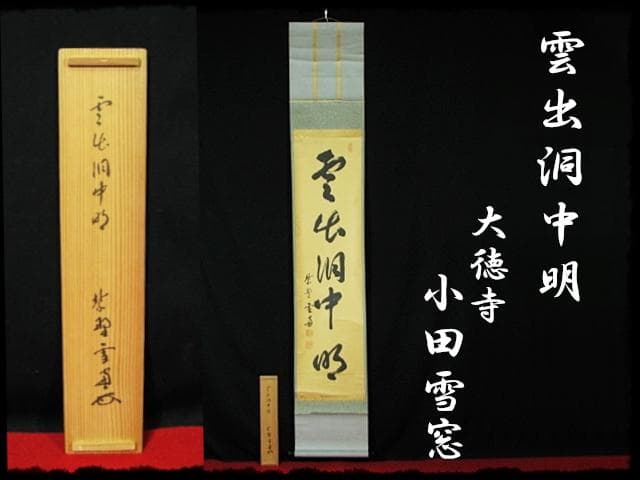 雲出洞中明
大徳寺
小田雪窓
雲出洞中明
紫野雪窓
雲出洞中明
紫野雪窓